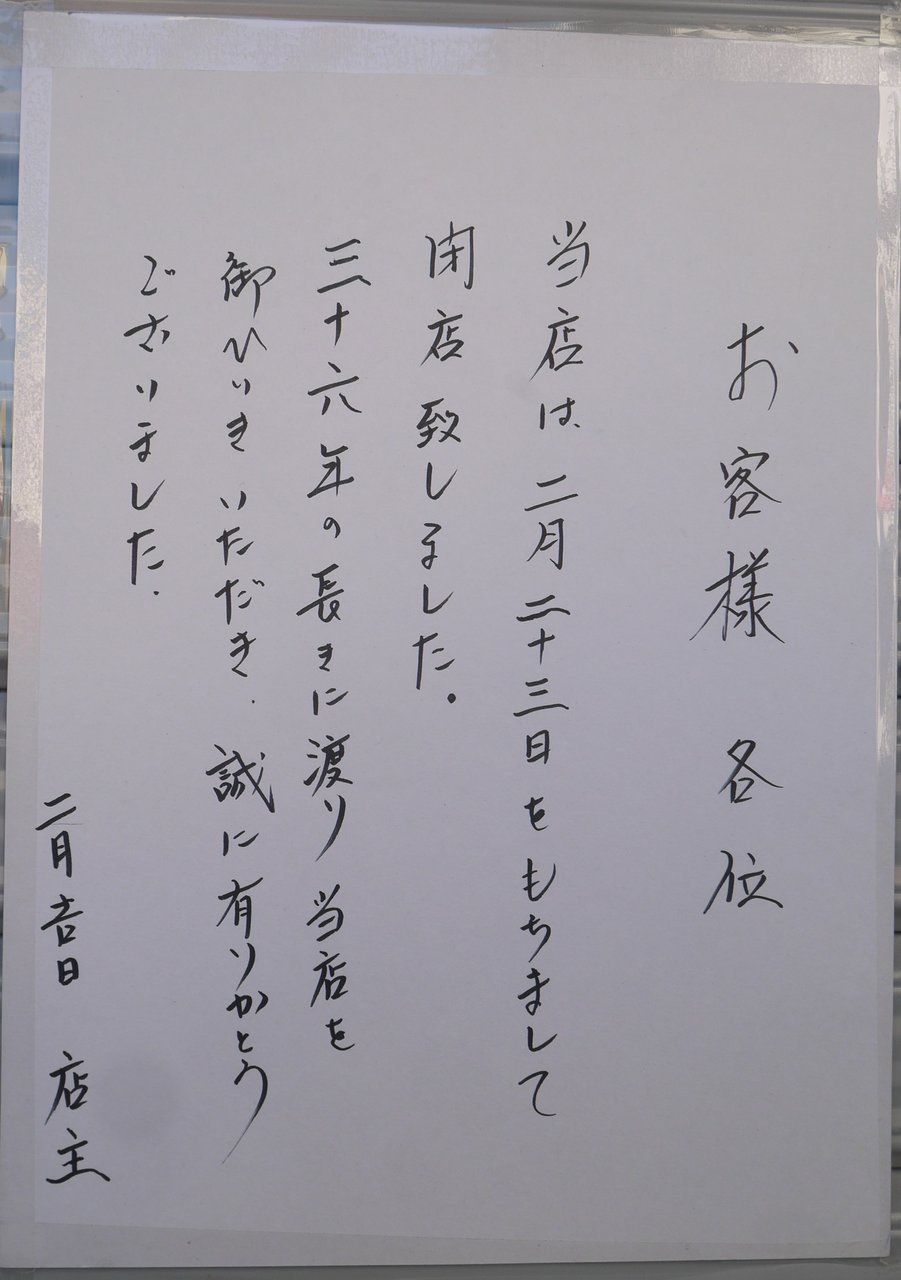 お客様 各位
当店は、二月二十三日をもちまして
閉店致しました。
三十六年の長きに渡り 当店を
御ひいきいただき、誠に有りがとう
ございました。
二月吉日 店主